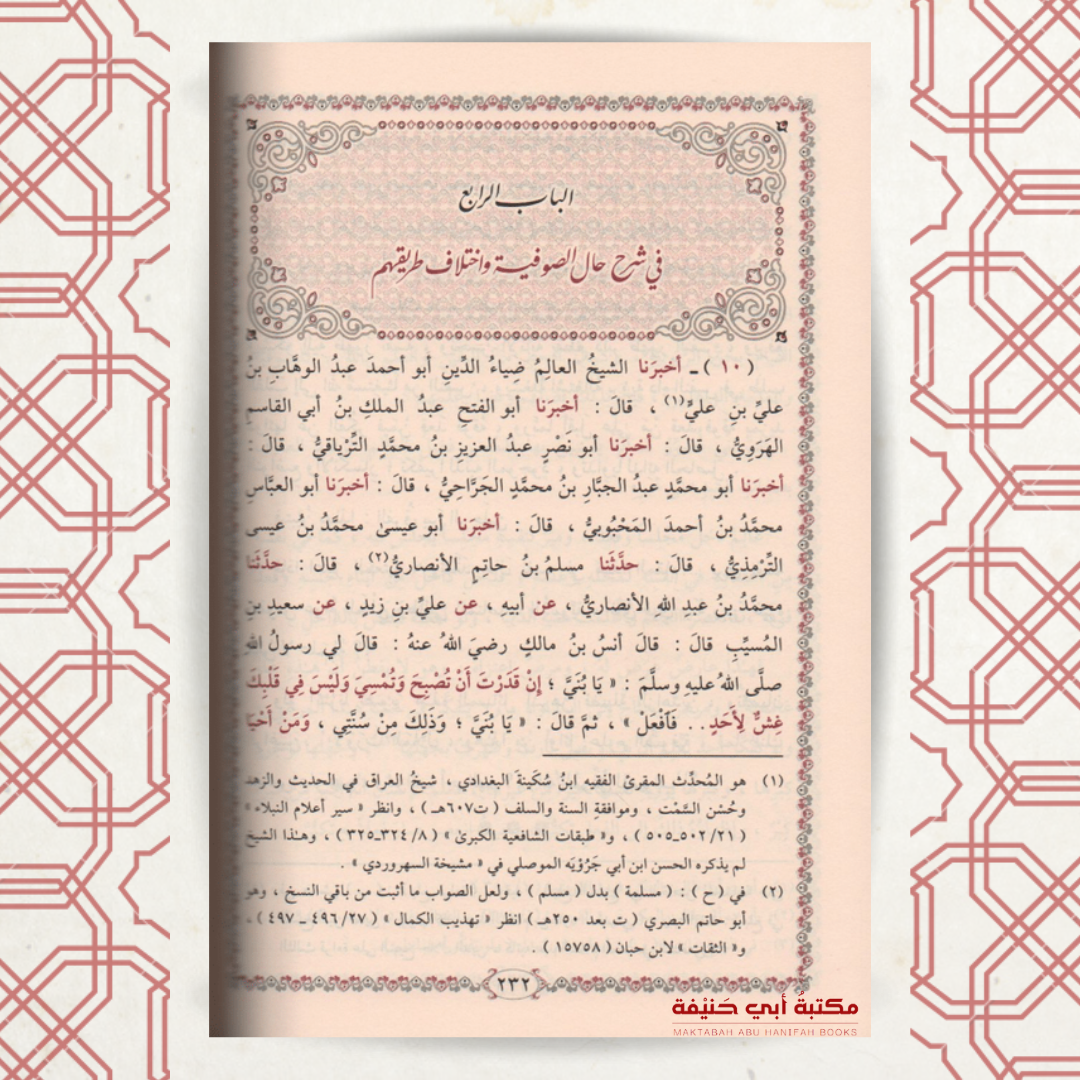 الباب الرابع
في شرح حال الصوفية واختلاف طريقهم
( ١٠ ) ـ أخبرَنا الشيخُ العالمُ ضِياءُ الدِّينِ أبو أحمدَ عبدُ الوهَّابِ بنُ
عليِّ بنِ عليٍّ(١) ، قالَ : أخبرَنا أبو الفتحِ عبدُ الملكِ بنُ أبي القاسمِ
الهَرَوِيُّ ، قالَ : أخبرَنا أبو نَصْرٍ عبدُ العزيزِ بنُ محمَّدٍ التِّرْياقيُّ ، قالَ :
أخبرَنا أبو محمَّدٍ عبدُ الجبَّارِ بنُ محمَّدٍ الجَرَّاحِيُّ ، قالَ : أخبرَنا أبو العبَّاسِ
محمَّدُ بنُ أحمدَ المَحْبُوبيُّ ، قالَ : أخبرَنا أبو عيسىٰ محمَّدُ بنُ عيسى
التِّرْمِذِيُّ ، قالَ : حدَّثَنا مسلمُ بنُ حاتِمٍ الأنصاريُّ(٢) ، قالَ : حدَّثَنا
محمَّدُ بنُ عبدِ اللهِ الأنصاريُّ ، عن أبيهِ ، عن عليِّ بنِ زيدٍ ، عن سعيدِ بنِ
المُسيِّبِ قالَ : قالَ أنسُ بنُ مالكٍ رضيَ اللهُ عنهُ : قالَ لي رسولُ اللهِ
صلَّى اللهُ عليهِ وسلَّمَ : « يَا بُنَيَّ ؛ إِنْ قَدَرْتَ أَنْ تُصْبِحَ وَتُمْسِيَ وَلَيْسَ فِي قَلْبِكَ
غِشٌّ لِأَحَدٍ . . فَٱفْعَلْ » ، ثمَّ قالَ : « يَا بُنَيَّ ؛ وَذَلِكَ مِنْ سُنَّتِي ، وَمَنْ أَحْيَا
(١) هو المُحدِّث المقرئ الفقيه ابنُ سُكَينةَ البغدادي ، شيخُ العراق في الحديث والزهد
وحُسْن السَّمْت ، وموافقةِ السنة والسلف ( ت٦٠٧هـ ) ، وانظر « سير أعلام النبلاء »
( ٢١/ ٥٠٢ـ٥٠٥ ) ، و« طبقات الشافعية الكبرىٰ » ( ٨/ ٣٢٤ـ٣٢٥ ) ، وهـٰذا الشيخ
لم يذكره الحسن ابن أبي جَرْوَيَه الموصلي في « مشيخة السهروردي » .
(٢) في ( ح ) : ( مسلمة ) بدل ( مسلم ) ، ولعل الصواب ما أثبت من باقي النسخ ، وهو
أبو حاتم البصري ( ت بعد ٢٥٠هـ ) انظر « تهذيب الكمال » ( ٢٧/ ٤٩٦ ـ ٤٩٧ ) ،
و« الثقات » لابن حبان ( ١٥٧٥٨ ) .
٢٣٢
مكتبةُ أبي حَنيْفة
MAKTABAH ABU HANIFAH BOOKS